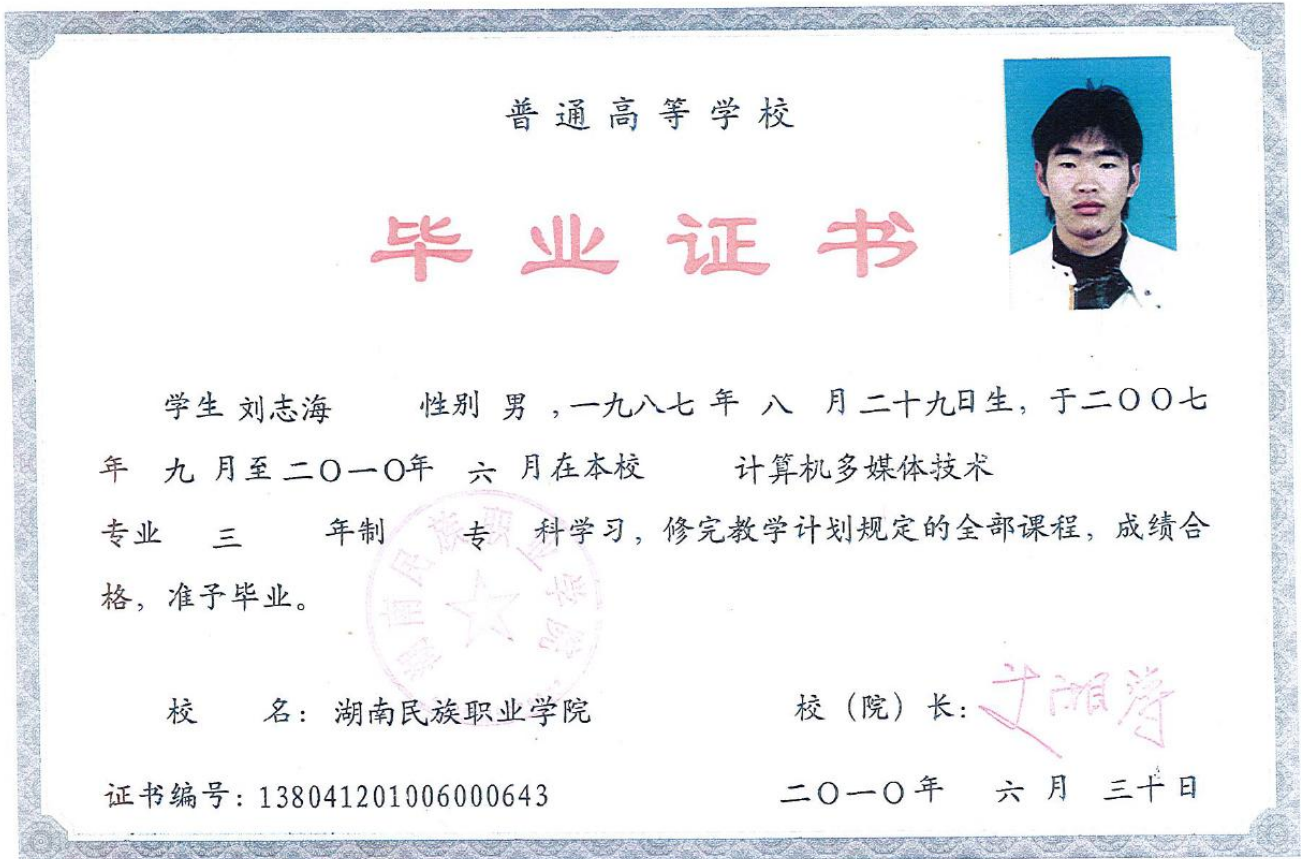 普通高等学校
毕业证书
学生 刘志海 性别 男 ，一九八七 年 八 月 二十九日生，于二〇〇七
年 九 月至 二〇一〇年 六 月在本校 计算机多媒体技术
专业 三 年制 专 科学习，修完教学计划规定的全部课程，成绩合
格，准予毕业。
湖南民族职业学院
校 名：湖南民族职业学院 校（院）长：
证书编号：138041201006000643 二〇一〇年 六 月 三十日